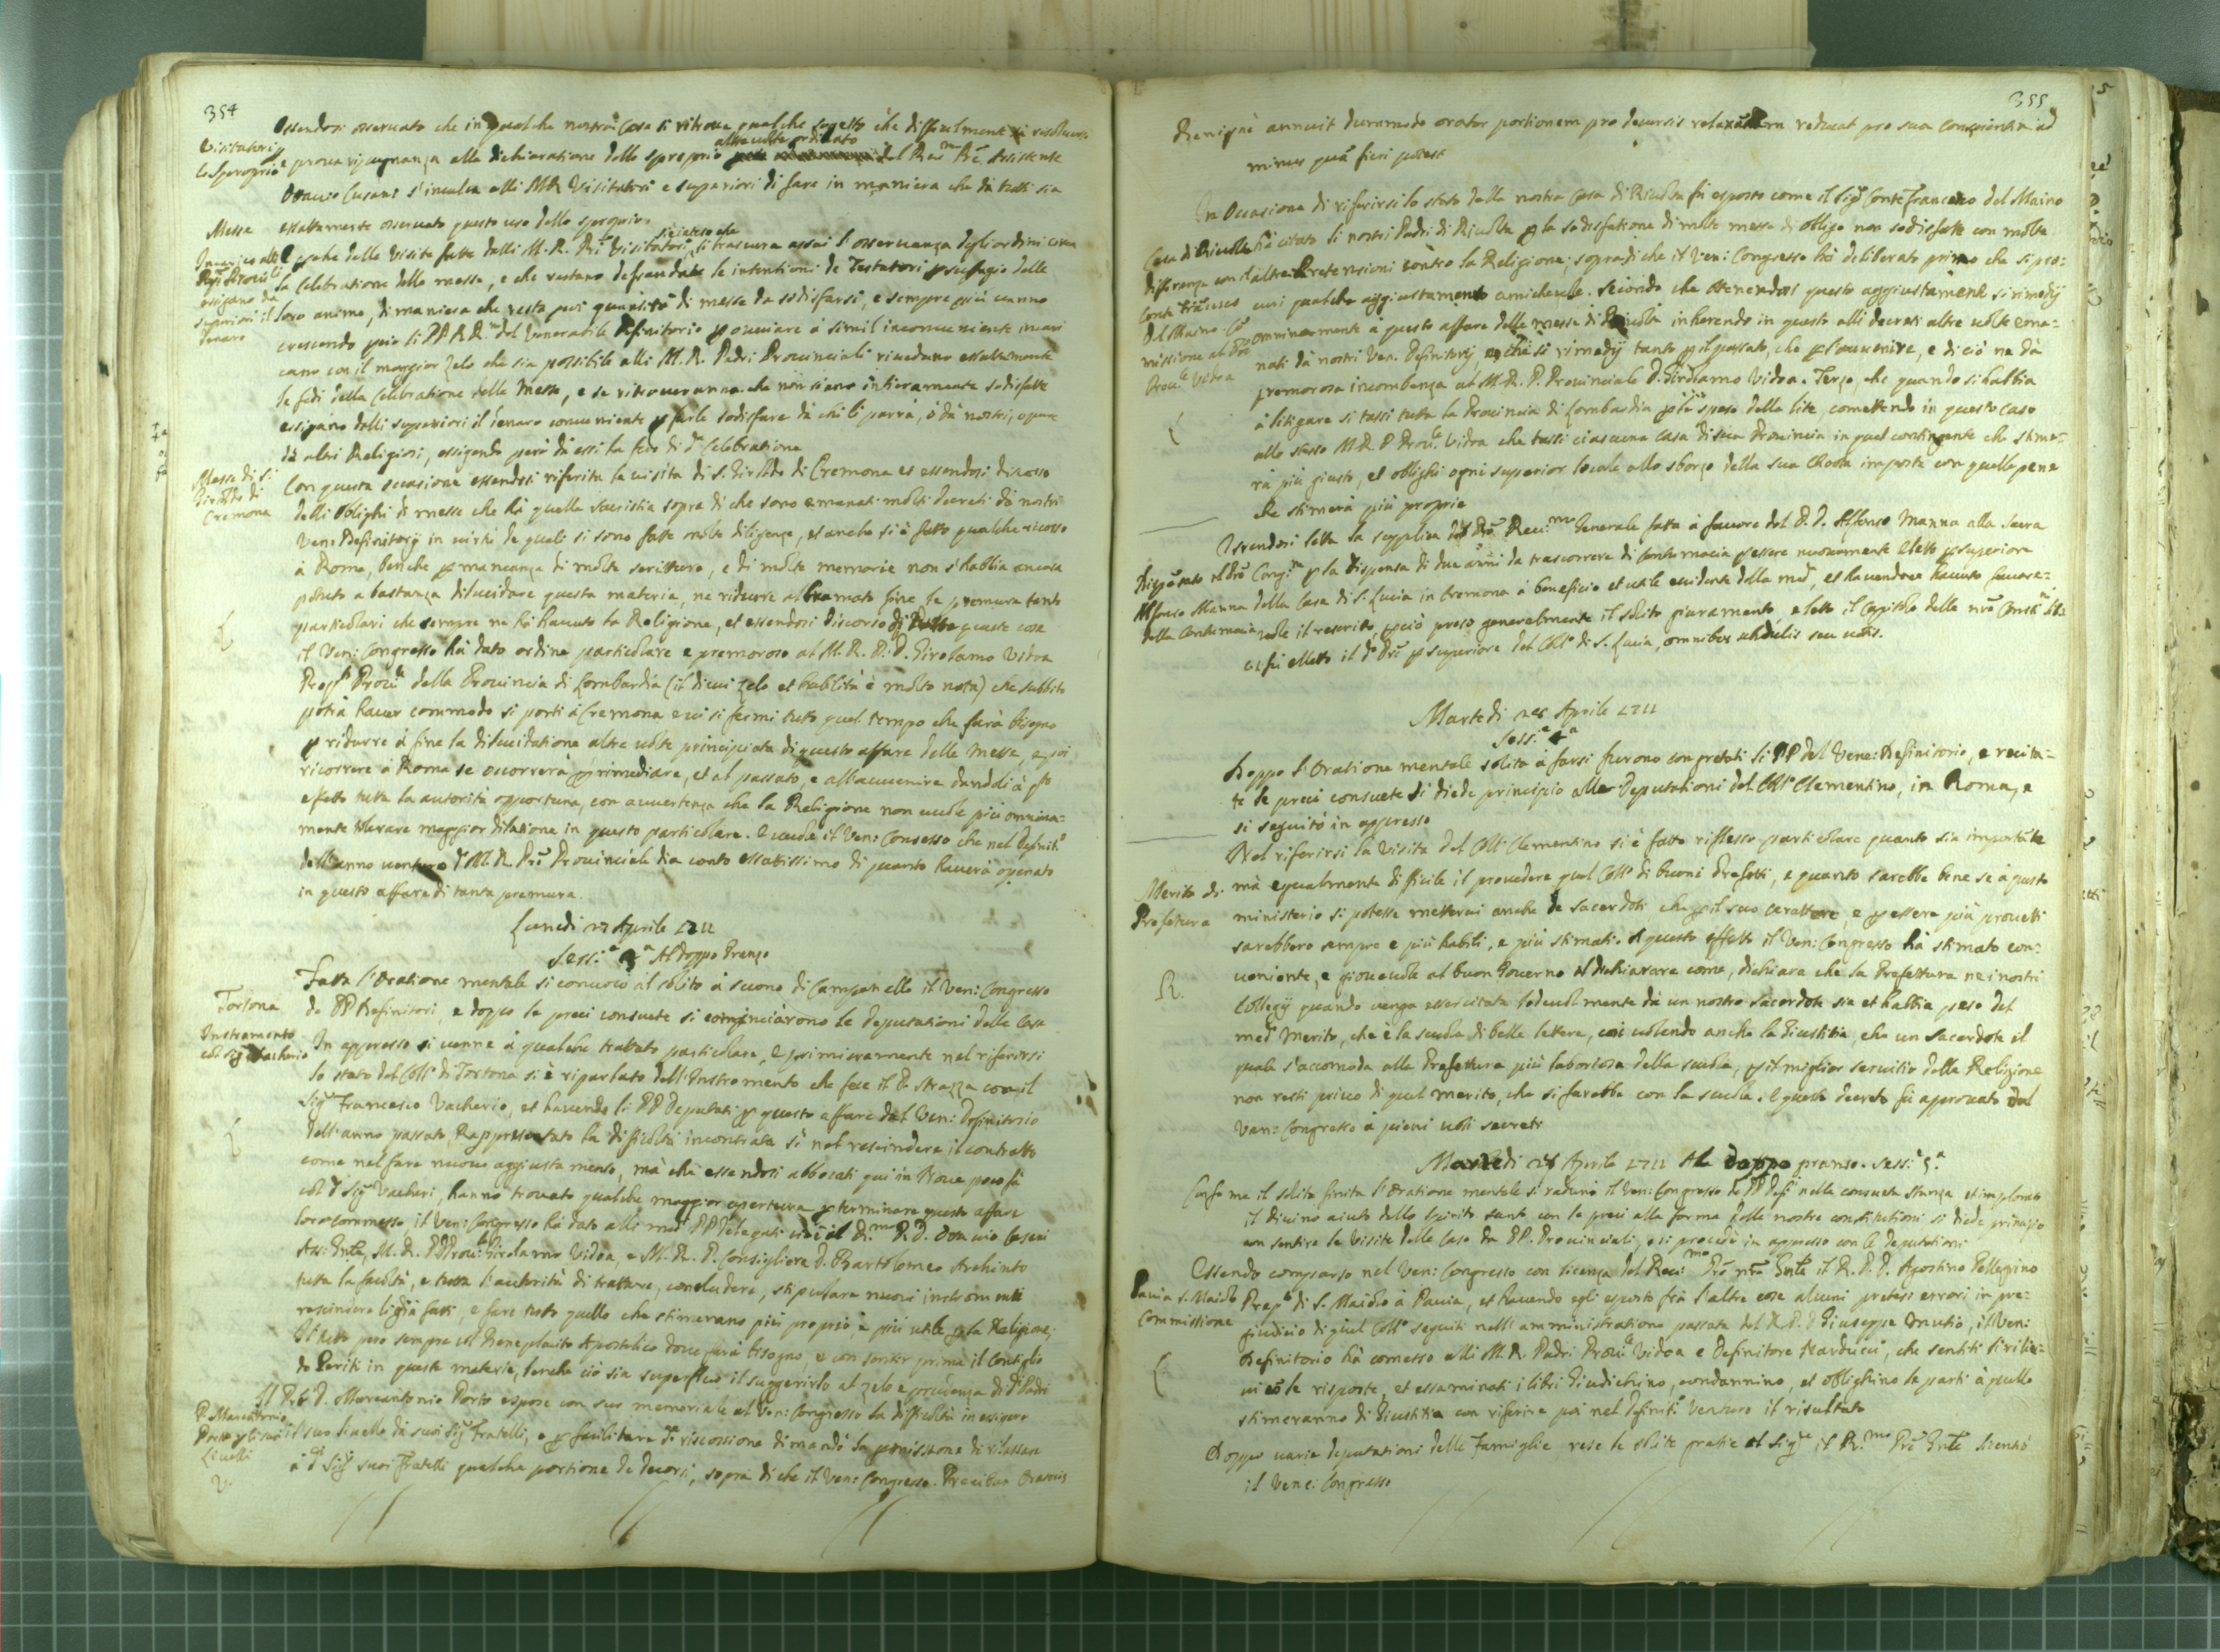 354
Visitatori
lo Sproprio
Essendosi osservato che in qualche nostra Casa si ritrova qualche sogetto che difficilmente si risolve
e prova ripugnanza alla dichiaratione dello sproprio altre volte ordinato dal Rev.mo Prē Assistente
Ottavio Cusani s'inculca alli MR Visitatori e superiori di fare in maniera che da tutti sia
esattamente osservato questo uso dello sproprio.
Messe
E perche dalle visite fatte dalli M. R. Prī Visitatori, si è inteso che si trascura assai l'osservanza degli ordini circa
la Celebratione delle messe, e che restano defraudate le intentioni de Testatori per suffragio delle
loro anime, di maniera che resta poi quantità di messe da sodisfarsi, e sempre più vanno
crescendo però li PP. R.R.mi del Venerabile Definitorio per ovviare à simil inconveniente incari
cano con il maggior zelo che sia possibile alli M. R. Padri Provinciali rivedano essattamente
le fedi della Celebratione delle Messe, e se ritroveranno che non siano intieramente sodisfatte
essigano dalli superiori il denaro conveniente per farle sodisfare da chi li parrà, ò dà nostri, o pure
dà altri Religiosi, essigendo però da essi la fede di d.a Celebratione
Messe di S.
Giroldo di
Cremona
Con questa occasione essendosi riferita la visita di S. Giroldo di Cremona et essendosi discorso
delli oblighi di messe che hà quella sacristia sopra di che sono emanati molti decreti dà nostri
Ven: Definitorij in virtù de quali si sono fatte molte diligenze, et anche si è fatto qualche ricorso
à Roma, benche per mancanza di molte scritture, e di molte memorie non s'habbia ancora
potuto a bastanza dilucidare questa materia, ne ridurre al bramato fine le premure tanto
particolari che sempre ne hà havuto la Religione, et essendosi discorso di tutte queste cose
il Ven: Congresso hà dato ordine particolare e premoroso al M. R. P. D. Girolamo Vidoa
Prov.le della Provincia di Lombardia (il di cui zelo et habilità è molto nota) che subbito
potrà haver commodo si porti à Cremona e vi si fermi tutto quel tempo che farà bisogno
per ridurre à fine la dilucidatione altre volte principiata di questo affare delle Messe, e poi
ricorrere à Roma se occorrerà per rimediare, et al passato, e all'avvenire dandoli à q.to
effetto tutta la autorità opportuna, con avvertenza che la Religione non vuole più omnina-
mente tolerare maggior dilatione in questo particolare. E vuole il Ven: Consesso che nel Definit.o
dell'anno venturo il M. R. Prē Provinciale dia conto essattissimo di quanto haverà operato
in questo affare di tanta premura.
Lunedi 27 Aprile 1711
Sess.e 3.a Al doppo Pranzo
Fatta l'oratione mentale si convocò al solito à suono di Campanello il Ven: Congresso
de PP Definitori, e doppo le preci consuete si cominciarono le deputationi delle Case
Tortona
Instromento
col Sig Vacherio
In appresso si venne à qualche trattato particolare, E primieramente nel riferirsi
lo stato del Coll.o di Tortona si è riparlato dell'Instromento che fece il P. Strazza con il
Sig.r Francesco Vacherio, et havendo li PP Deputati per questo affare dal Ven: Definitorio
dell'anno passato, Rappresentato la difficoltà incontrata sì nel rescindere il contratto
come nel fare nuovo aggiustamento, mà che essendosi abboccati qui in Nove poco fà
col d.o Sig.r Vacheri, hanno trovato qualche maggior apertura per terminare questo affare
loro commesso, il Ven: Congresso hà dato alli med.mi PP Delegati cioè il R.mo P. D. Ottavio Cusani
Ass: Gnle, M. R. P. Prov.le Girolamo Vidoa, e M. R. P. Consigliere D. Bartolomeo Archinto
tutta la facoltà, e tutta l'autorità di trattare, concludere, stipulare nuovi instromenti
rescindere li già fatti, e fare tutto quello che stimerano più proprio, e più utile per la Religione;
Il tutto però sempre col Beneplacito Apostolico dove farà bisogno, e con sentir prima il Consiglio
de Periti in queste materie, benche ciò sia superfluo il suggerirlo al zelo e prudenza di d.i Padri
P. Marcantonio
Porto per li suoi
Livelli
Il P. D. Marcantonio Porto espose con suo memoriale al Ven: Congresso la difficoltà in essigere
il suo livello da suoi Sig.ri Fratelli, e per facilitare d.a riscossione dimandò la permissione di rilassare
à d.i Sig.ri suoi Fratelli qualche portione de decorsi, sopra di che il Ven: Congresso. Precibus Oratoris
355
Benignè annuit dummodo orator portionem pro decursis relaxandam reducat pro sua conscientia ad
minus quā fieri potest
Casa di Rivolta
differenza con il
Conte Frācesco
Del Maino Cō
missione al Prē
Prov.le Vidoa
In Occasione di riferirsi lo stato della nostra Casa di Rivolta fù esposto come il Sig.r Conte Francesco Del Maino
hà citato li nostri Padri di Rivolta per la sodisfatione di molte messe di obligo non sodisfatte con molte
altre Pretensioni contro la Religione; sopra di che il Ven: Congresso hà deliberato primo che si pro-
curi qualche aggiustamento amichevole. Secondo che ottenendosi questo aggiustamente si rimedij
omninamente à questo affare delle messe di Rivolta inherendo in questo alli decreti altre volte ema-
nati dà nostri Ven. Definitorij, e che si rimedij tanto per il passato, che per l'avvenire, e di ciò ne dà
premorosa incombenza al M. R. P. Provinciale D. Girolamo Vidoa. Terzo, che quando si habbia
à litigare si tassi tutta la Provincia di Lombardia per le spese della lite, comettendo in questo caso
allo stesso M. R. P Prov.le Vidoa che tassi ciascuna casa di sua Provincia in quel contingente che stime-
rà più giusto, et oblighi ogni superior locale allo sborzo della sua quota imposta con quelle pene
che stimerà più proprie
Dispēsato il Prē
Alfonso Manna
dalla Contumacia
Essendosi letta la supplica del Prē Rev.mo Generale fatta à favore del P. D. Alfonso Manna alla Sacra
Cong.ne per la dispensa di due anni da trascorrere di contumacia per essere nuovamente eletto per superiore
della Casa di S. Lucia in Cremona à beneficio et utile evidente della med.a, et havendone havuto favore-
vole il rescritto, perciò preso generalmente il solito giuramento e letto il Capitolo delle nrē Constit.ni
fù eletto il d.o Prē per superiore del Coll.o di S. Lucia, omnibus
Martedi 28 Aprile 1711
Sess.e 4.a
Doppo l'Oratione mentale solita à farsi furono congregati li PP del Vene: Definitorio, e recita-
te le preci consuete si diede principio alle Deputationi del Coll.o Clementino, in Roma, e
si seguitò in appresso
Merito di
Prefettura
Nel riferirsi la Visita del Coll.o Clementino si è fatto riflesso particolare quanto sia importāte
mà egualmente difficile il provedere quel Coll.o di buoni Prefetti, e quanto sarebbe bene se à questo
ministerio si potesse mettervi anche de Sacerdoti che per il suo carattere, e per essere più provetti
sarebbero sempre e più habili, e più stimati. A questo effetto il Ven: Congresso hà stimato con-
veniente, e giovevole al buon Governo il dichiarare come, dichiara che la Prefettura ne i nostri
Collegij quando venga essercitata lodevolmente dà un nostro Sacerdote sia et habbia peso del
med.mo Merito, che è la scuola di belle lettere, così volendo anche la Giustitia, che un Sacerdote il
quale s'accomoda alla Prefettura più laboriosa della scuola, per il miglior servitio della Religione
non resti privo di quel merito, che si farebbe con la scuola. E questo decreto fù approvato dal
Ven: Congresso à pieni voti secreti
Martedi 28 Aprile 1711 Al doppo pranso. Sess.e 5.a
Conforme il solito finita l'oratione mentale si radunò il Ven: Congresso de PP Defi.ri nella consueta stanza et implorato
il divino aiuto dello Spirito Santo con le preci alla forma delle nostre constitutioni si diede principio
con sentire le visite delle Case da PP. Provinciali, e si procedè in appresso con le deputationi
Pavia S. Maiolo
Commissione
Essendo comparso nel Ven: Congresso con licenza del Rev.mo Prē nrō Gnle il R. P. D. Agostino Pellegrino
Prep.to di S. Maiolo à Pavia, et havendo egli esposto frà l'altre cose alcuni pretesi errori in pre-
giudicio di quel Coll.o seguiti nell'amministratione passata del R. P. D Giuseppe Mutio, il Ven:
Definitorio hà comesso alli M. R. Padri Prov.le Vidoa e Definitore Narducci, che sentiti
le risposte, et essaminati i libri Giudichino, condannino, et oblighino le parti à quello
stimeranno di Giustitia con riferire poi nel Definit.o Venturo il risultato
Doppo varie deputationi delle Famiglie, rese le solite gratie al Sig.re il R.mo Prē Gnle licentiò
il Vene: Congresso